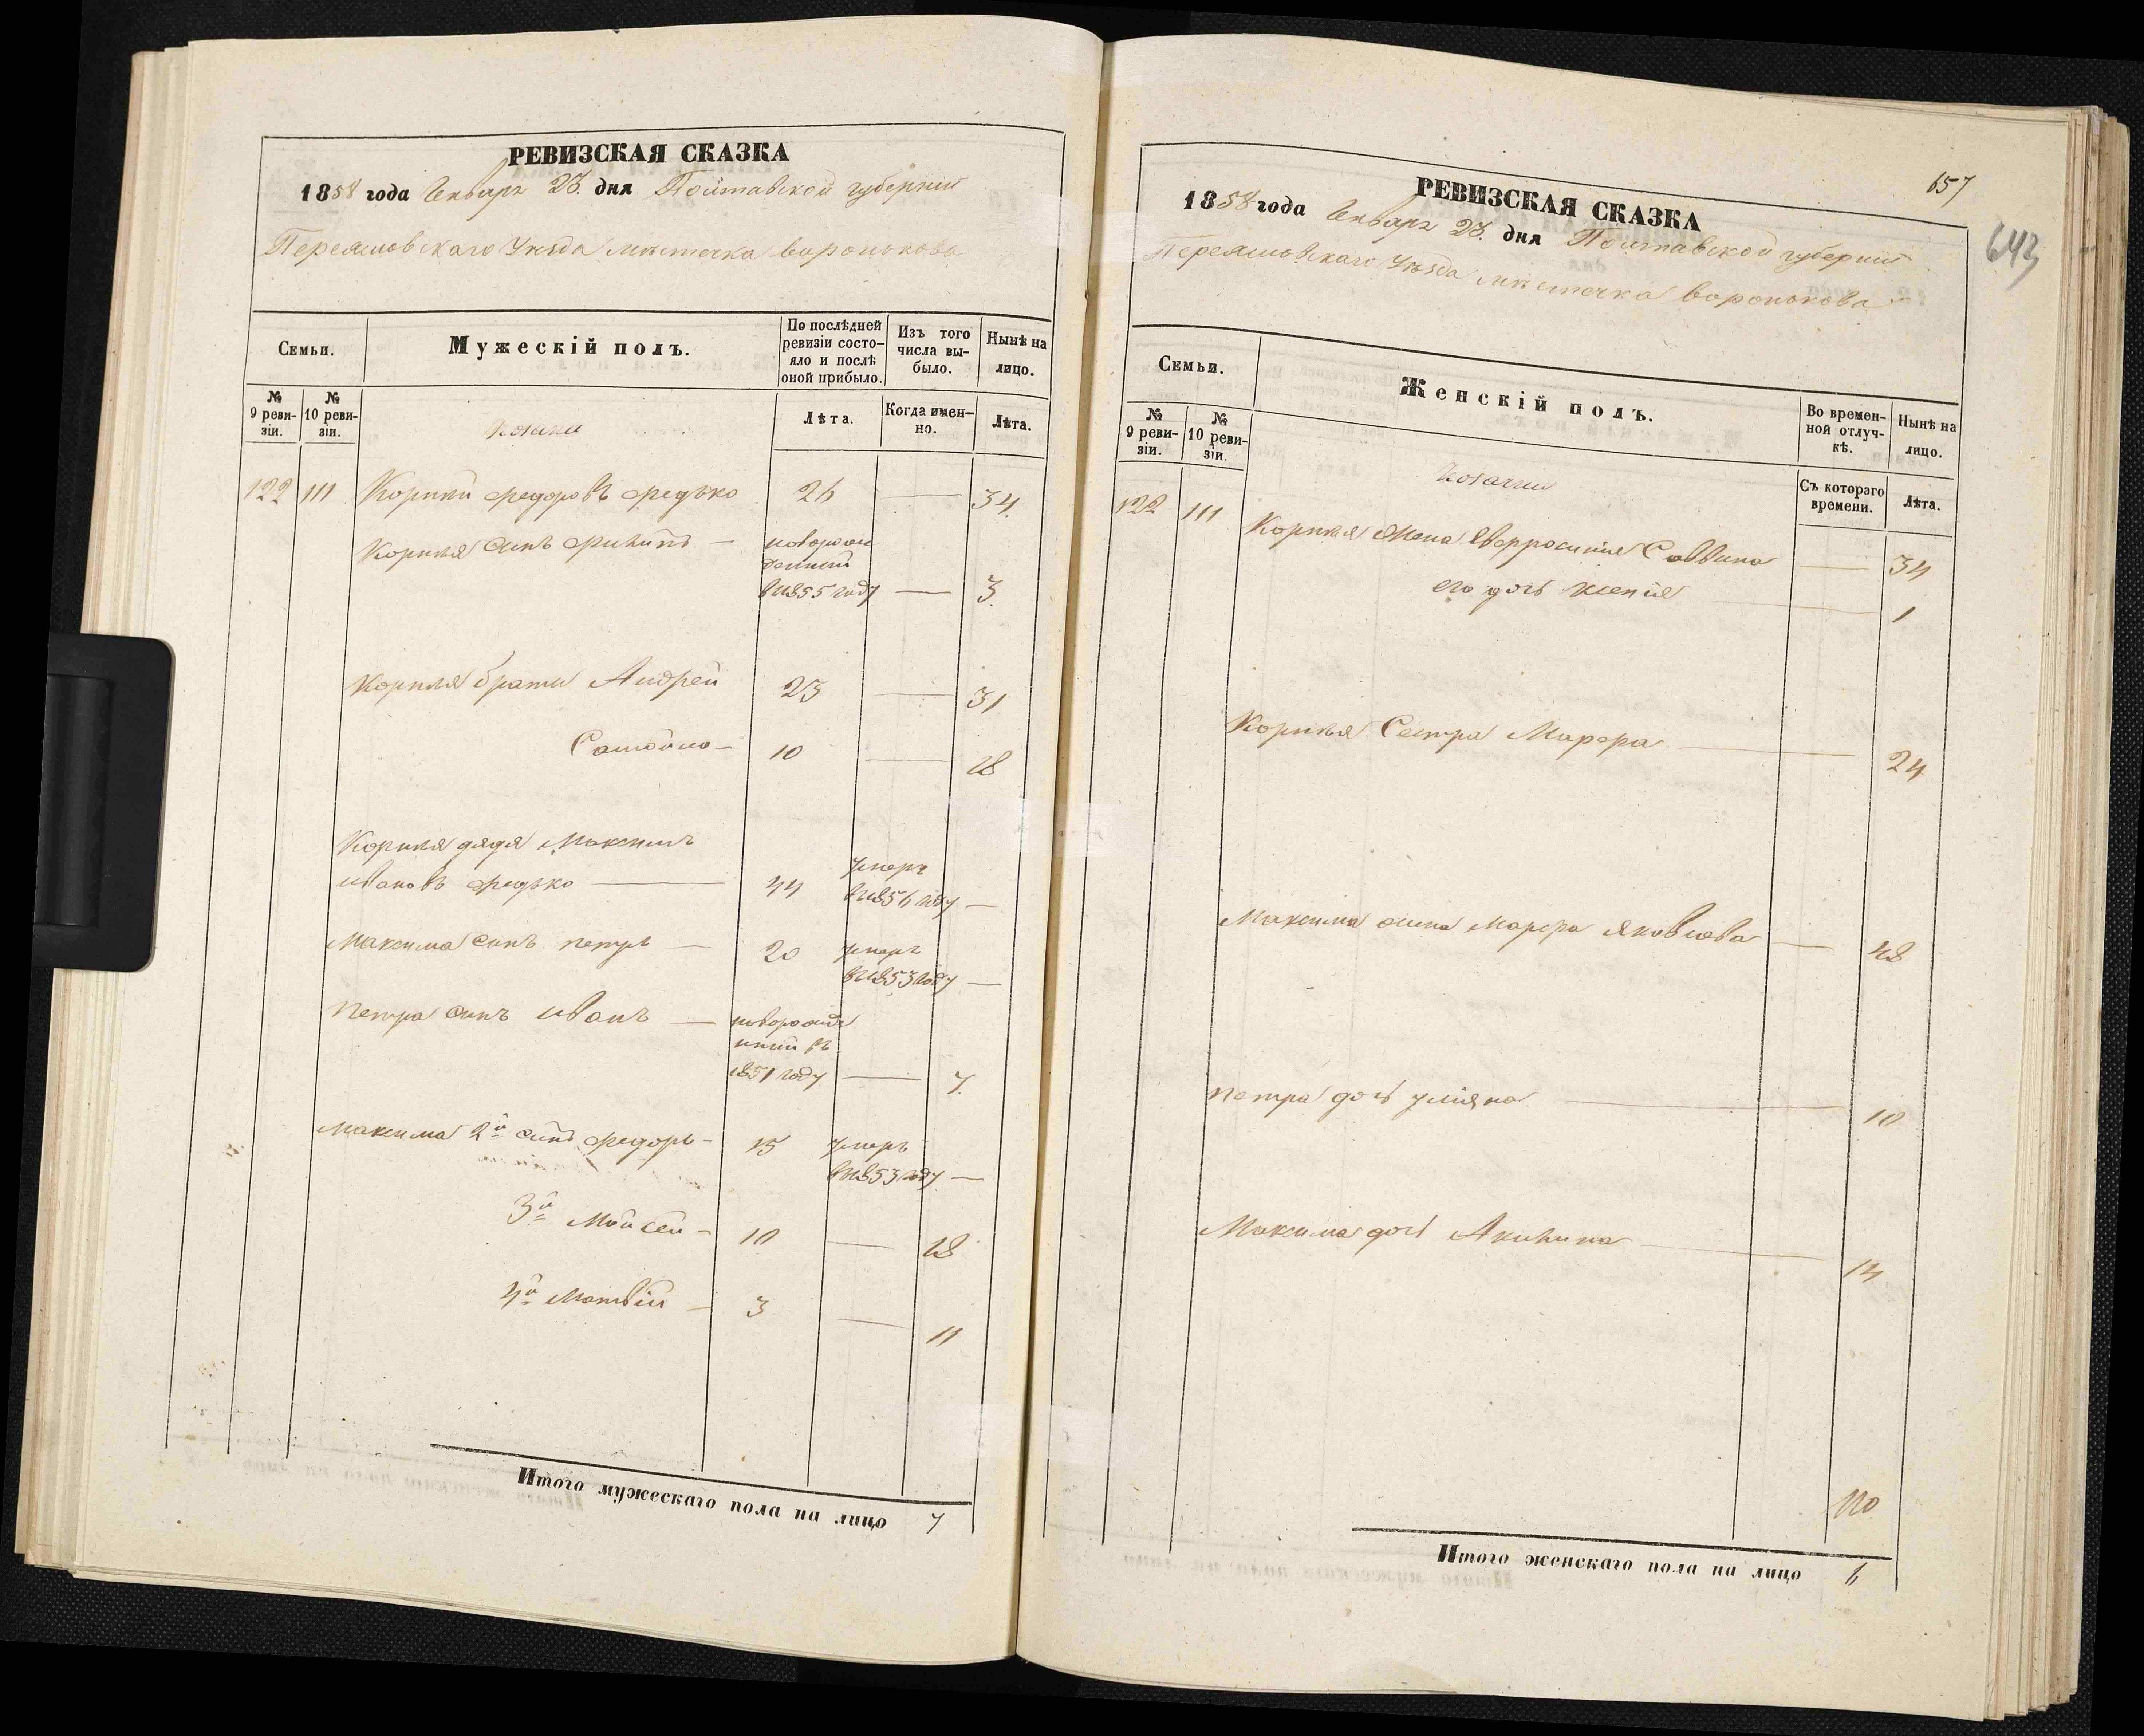 РЕВИЗСКАЯ СКАЗКА
1858 года Генваря 23. дня Полтавской губерніи
Переяславскаго Уѣзда мѣстечка Воронькова
Семьи.
Мужескій полъ.
По послѣдней ревизіи состояло и послѣ оной прибыло.
Изъ того числа выбыло.
Нынѣ на лицо.
№ 9 ревизіи.
№ 10 ревизіи.
козаки
Лѣта.
Когда именно.
Лѣта.
122 111 Корнѣй Федоровъ Федько 26 — 34.
Корнѣя синъ Филипъ — новорожденный
в 1855 году — 3.
Корнѣя братья Андрей 23 — 31
Самойло — 10 — 18
Корнѣя дядя Максимъ
Ивановъ Федько — 44 умеръ
в 1856 году —
Максима синъ петръ — 20 умеръ
в 1853 году —
Петра синъ иванъ — новорожде
нный въ
1851 году — 7.
Максима 2й синъ федоръ — 15 умеръ
в 1853 году —
3й Мойсей — 10 — 18
4й Матвій — 3 — 11
Итого мужескаго пола на лицо 7
657
643
РЕВИЗСКАЯ СКАЗКА
1858 года Генваря 23. дня Полтавской губерніи
Переяславскаго Уѣзда мѣстечка Воронькова
Семьи.
Женскій полъ.
Во временной отлучкѣ.
Нынѣ на лицо.
№ 9 ревизіи.
№ 10 ревизіи.
козачки
Съ котораго времени.
Лѣта.
122 111 Корнѣя жена Евфросинія Саввина — 34
его дочь ксенія — 1
Корнѣя Сестра Марфа — 24
Максима жена Марфа яковлева — 48
петра дочь уліяна — 10
Максима дочь Акилина — 14
Итого женскаго пола на лицо 6